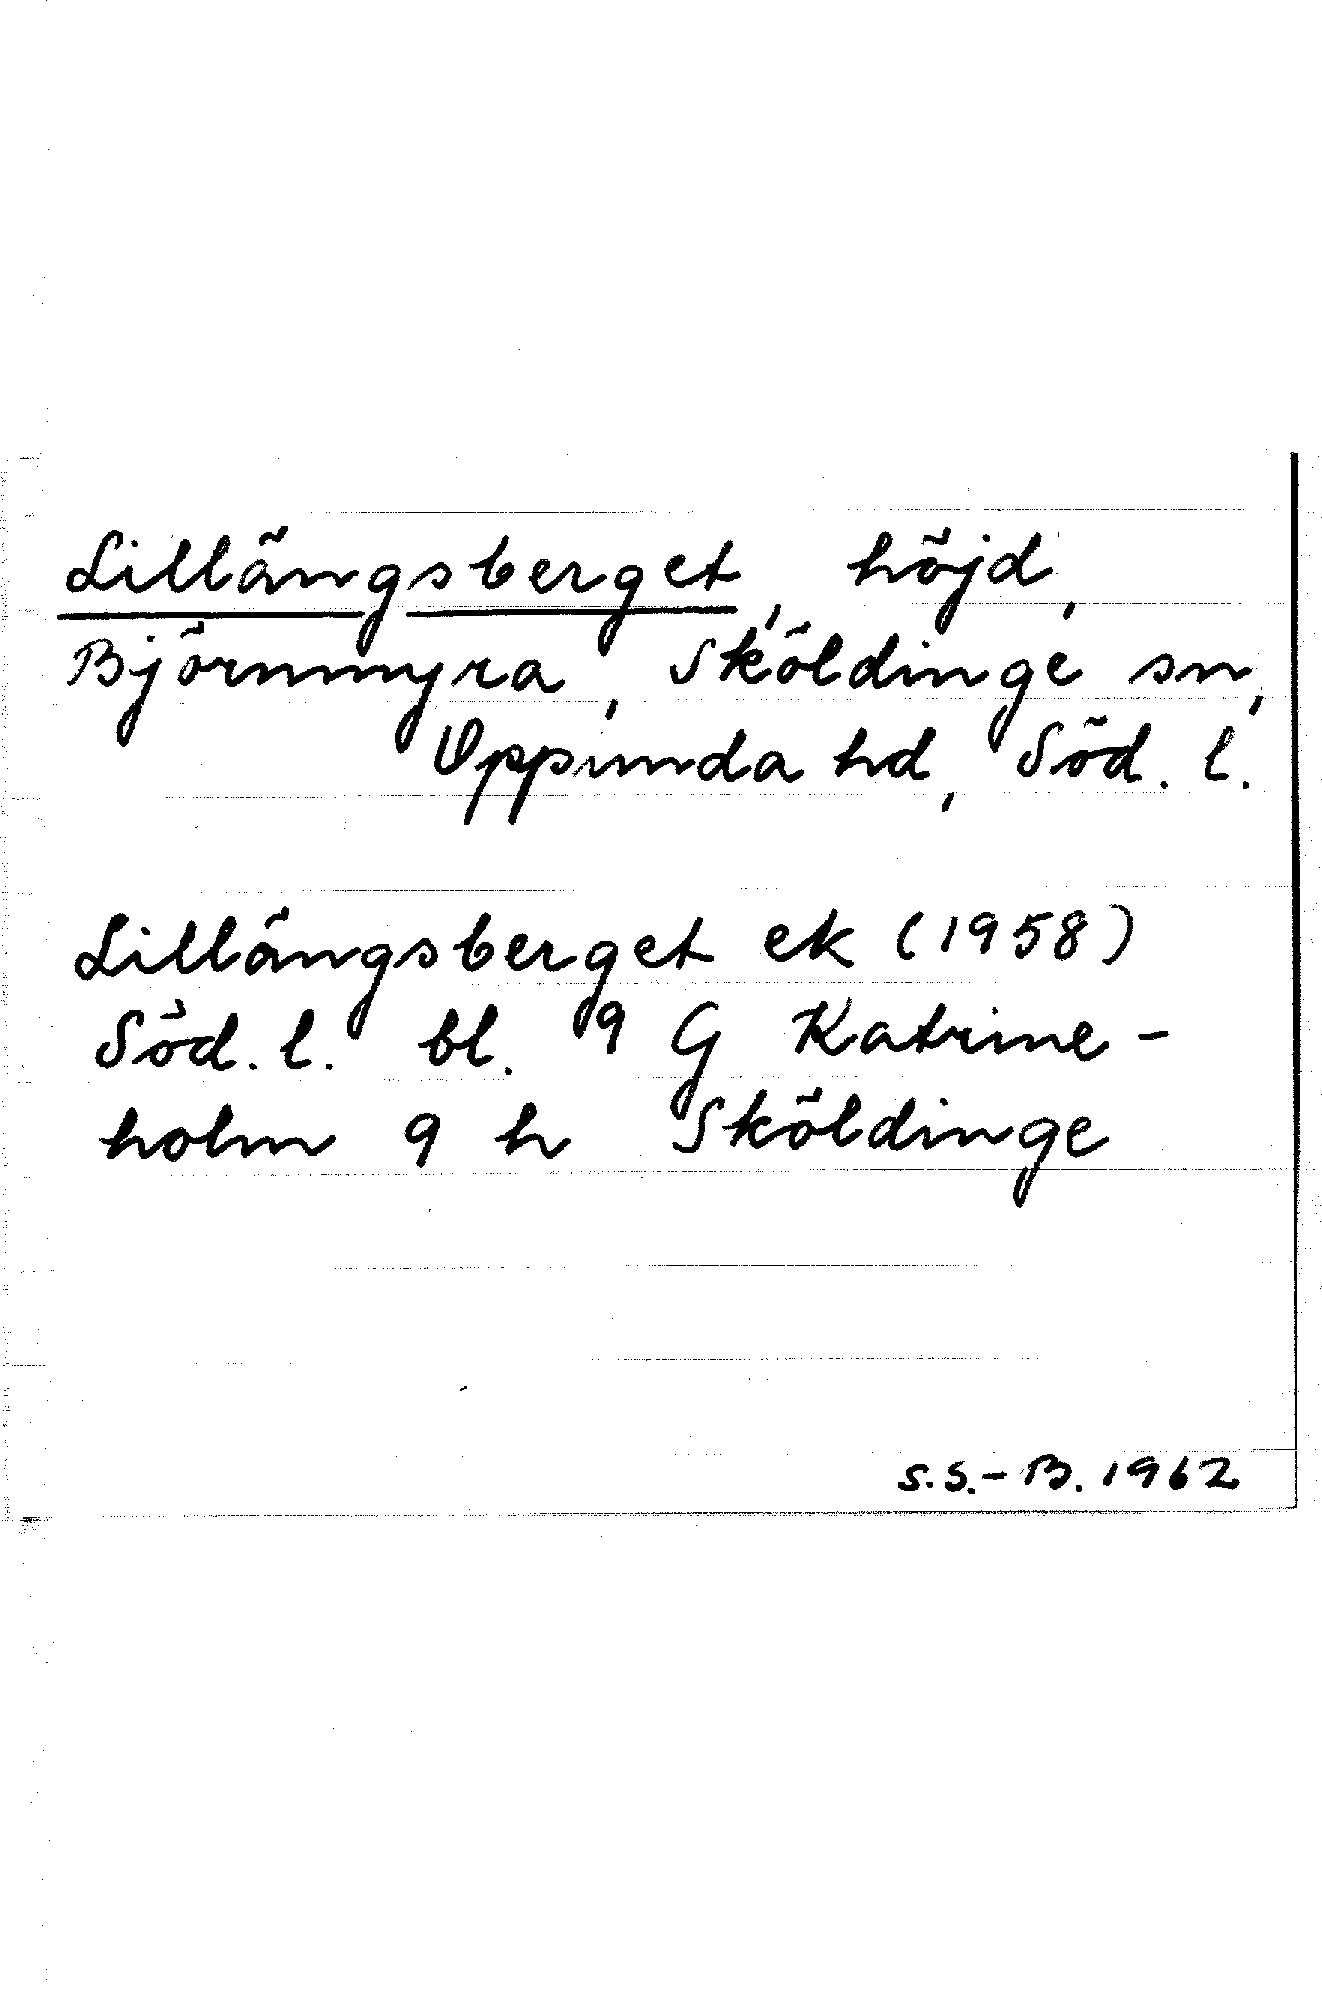 Lillängsberget, höjd,
Björnmyra, Sköldinge sn,
Oppunda hd, Söd. l.
Lillängsberget ek (1958)
Söd. l. bl. 9 G Katrine-
holm 9 h Sköldinge
S.S.-B. 1962